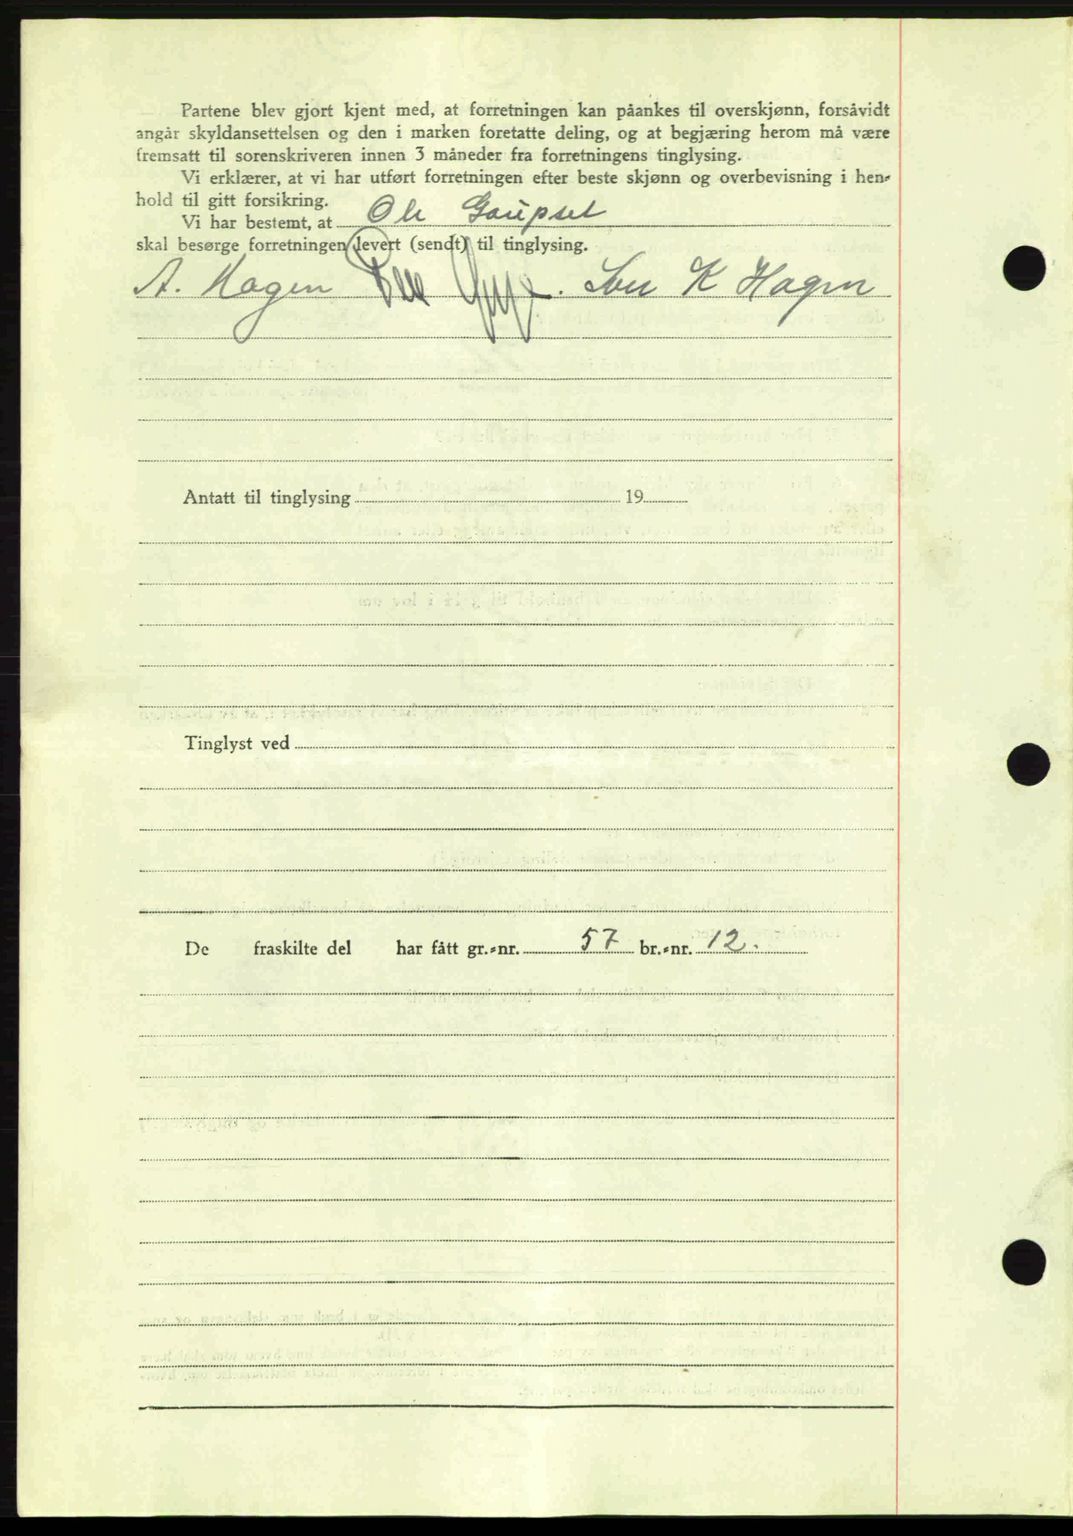 Partene blev gjort kjent med, at forretningen kan påankes til overskjønn, forsåvidt
angår skyldansettelsen og den i marken foretatte deling, og at begjæring herom må være
fremsatt til sorenskriveren innen 3 måneder fra forretningens tinglysing.
Vi erklærer, at vi har utført forretningen efter beste skjønn og overbevisning i hen-
hold til gitt forsikring.
Vi har bestemt, at Ole Gaupset
skal besørge forretningen levert (sendt) til tinglysing.
A. Hagen K Hagen
Antatt til tinglysing 19
Tinglyst ved
De fraskilte del har fått gr.-nr. 57 br.-nr. 12.